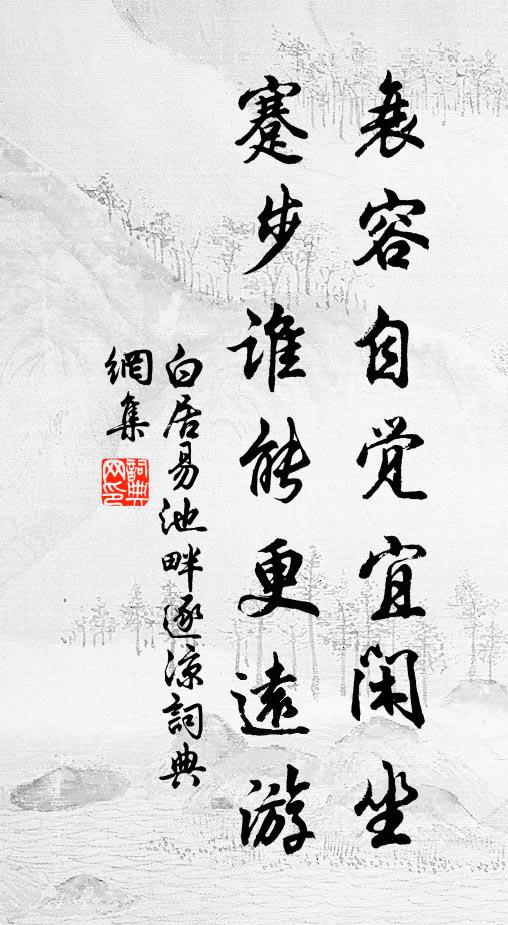 衰容自觉宜闲坐
蹇步谁能更遠游
白居易池畔逐凉詞典
網集
詞典网印